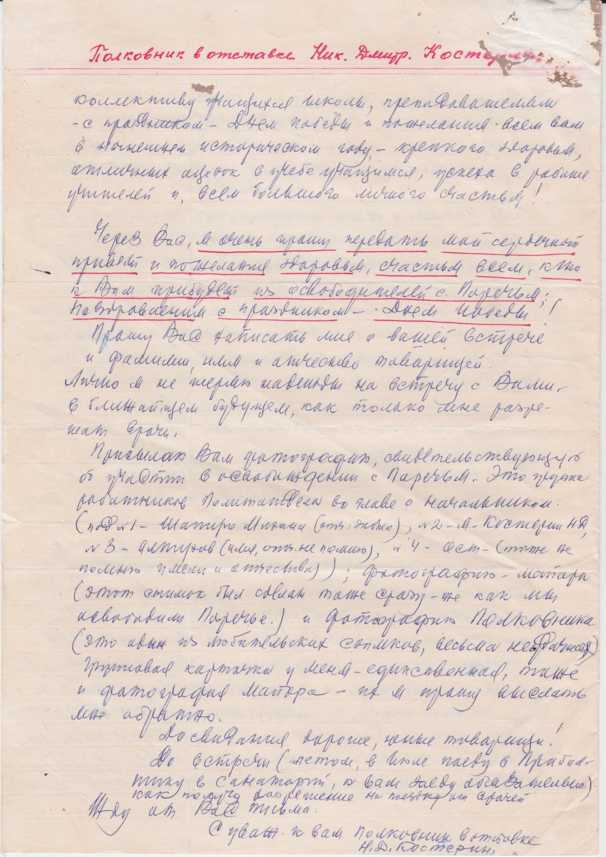 Полковник в отставке Ник. Дмитр. Костерин
коллективу учащихся школы, преподавателям
- с праздником - Днем победы и пожелания всем вам
в нынешнем историческом году, - крепкого здоровья,
отличных оценок в учебе учащимся, успеха в работе
учителей и, всем большого личного счастья!
Через Вас, я очень прошу передать мой сердечный
привет и пожелания здоровья, счастья всем, кто
к Вам прибудет из освободителей с Паречья;
поздравления с праздником - Днем победы!
Прошу Вас написать мне о вашей встрече
и фамилии, имя и отчество товарищей.
Лично я не теряю надежды на встречу с Вами -
в ближайшем будущем, как только мне разре-
шат врачи.
Присылаю Вам фотографию, свидетельствующую
об участии в освобождении с Паречья. Это группа
работников Политотдела во главе с начальником.
(под №1 - Шапиро, №2 - я - Костерин НД,
№3 - (имя, отч. не помню), №4 - (тоже не
помню имени и отчества)); фотографию - майора
(этот снимок был сделан тоже сразу-же как мы
освободили Паречье.) и фотографию Полковника
(это один из любительских снимков, весьма неудачная)
Групповая карточка у меня - единственная, также
и фотография майора - их я прошу выслать
мне обратно.
До свидания, дорогие, юные товарищи!
До встречи (летом, в июле поеду в Прибал-
тику в санаторий, к вам заеду обязательно)
как получу разрешение на поездку от врачей
Жду от Вас письма.
С уваж. к вам полковник в отставке
Н.Д. Костерин.